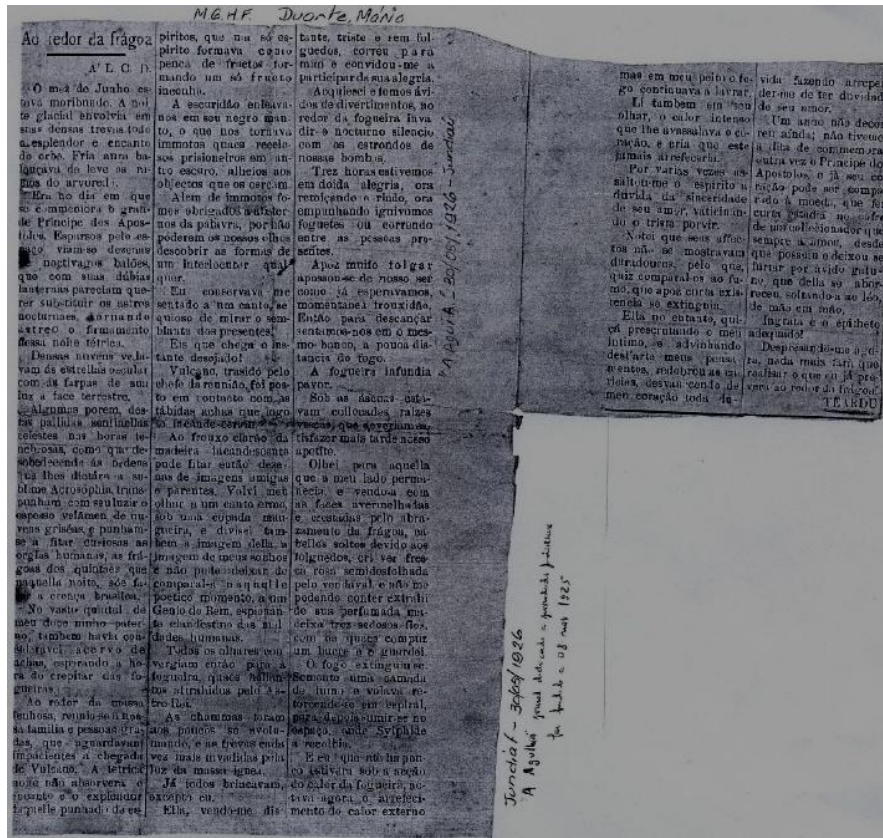 M.G.H.F. Duarte, Mário
Ao redor da frágoa
A' L. C. D.
O mez de Junho es-
tava moribundo. A noi-
te glacial envolvia em
suas densas trevas todo
o esplendor e encanto
do orbe. Fria aura ba-
louçava de leve os ra-
mos do arvoredo.
Era no dia em que
se commemora o gran-
de Principe dos Apos-
tolos. Esparsos pelo es-
paço viam-se dezenas
de noctivagos balões,
que com suas dúbias
lanternas pareciam que-
rer substituir os astros
nocturnos, tornando
astreo o firmamento
dessa noite tétrica.
Densas nuvens vela-
vam ás estrellas oscular
com as farpas de sua
luz a face terrestre.
Algumas porem, des-
tas pallidas sentinellas
celestes nas horas te-
nebrosas, como que de-
sobedecendo ás ordens
que lhes dictára a su-
blime Acrosophia, trans-
punham com seu luzir o
espesso velámen de nu-
vens griséas, e punham-
se a fitar curiosas as
orgias humanas, as frá-
goas dos quintaes que
naquella noite, sóe fa-
zer a crença brasilea.
No vasto quintal de
meu doce ninho pater-
no, tambem havia con-
sideravel acervo de
achas, esperando a ho-
ra do crepitar das fo-
gueiras.
Ao redor da nossa
lenhosa, reuniu-se a nos-
sa familia e pessoas gra-
das, que aguardavam
impacientes a chegada
de Vulcano. A tétrica
noite não absorvera o
encanto e o explendor
daquelle punhado de es-
piritos, que num só es-
pirito formava como
penca de fructos for-
mando um só fructo
inconha.
A escuridão enleava-
nos em seu negro man-
to, o que nos tornava
immotos quaes recelo-
sos prisioneiros em an-
tro escuro, alheios aos
objectos que os cercam.
Alem de immotos fo-
mos obrigados a abster-
nos da palavra, por não
poderem os nossos olhos
descobrir as formas de
um interlocutor qual
quer.
Eu conservava me
sentado a um canto, se
quioso de mirar o sem-
blante dos presentes.
Eis que chega o ins-
tante desejado!
Vulcano, trasido pelo
chefe da reunião, foi pos-
to em contacto com as
tábidas achas que logo
se incande-ceram.
Ao frouxo clarão da
madeira incandescente
pude fitar então deze-
nas de imagens amigas
e parentes. Volvi meu
olhar a um canto ermo,
sob uma copada man-
gueira, e divisei tam-
bem a imagem della, a
imagem de meus sonhos
e não pude deixar de
comparal-a naquelle
poetico momento, a um
Genio do Bem, espionan-
te clandestino das mal
dades humanas.
Todos os olhares con
vergiam então para a
fogueira, quaes helian-
tos attrahidos pelo As-
tro Rei.
As chammas foram
aos poucos se avolu-
mando, e as trevas cada
vez mais invadidas pela
luz da massa ignea.
Já todos brincavam,
excepto eu.
Ella, vendo-me dis-
tante, triste e sem fol-
guedos, correu para
mim e convidou-me a
participar da sua alegria.
Acquiesci e fomos ávi-
dos de divertimentos, ao
redor da fogueira inva
dir o nocturno silencio
com os estrondos de
nossas bombas.
Trez horas estivemos
em doida alegria, ora
retoiçando e rindo, ora
empunhando ignivomos
foguetes ou correndo
entre as pessoas pre-
sentes.
Apoz muito folgar
apossou-se de nosso ser
como já esperavamos,
momentanea frouxidão.
Então para descançar
sentamos-nos em o mes-
mo banco, a pouca dis-
tancia do fogo.
A fogueira infundia
pavor.
Sob as áscuas esta-
vam collocadas raizes
que deveriam sa-
tisfazer mais tarde nosso
apetite.
Olhei para aquella
que a meu lado perma-
necia, e vendo-a com
as faces avermelhadas
e crestadas pelo abra-
zamento da frágoa, ca-
bellos soltos devido aos
folguedos, cri ver fres-
ca rosa semidesfolhada
pelo vendaval, e não me
podendo conter extrahi
de sua perfumada ma-
deixa trez sedosos fios,
com os quaes compuz
um lucre e o guardei.
O fogo extinguiu-se.
Somente uma camada
de fumo e volava re-
torcendo-se em espiral,
para depois sumir-se no
espaço, onde Sylphide
a recolhia.
E eu, que não ha pou-
co estivera sob a acção
do calor da fogueira, no-
tava agora o arrefeci-
mento do calor externo
"A AGULHA" - 30/05/1926 - Jundiaí
mas em meu peito o fo-
go continuava a lavrar.
Lí tambem em seu
olhar, o calor intenso
que lhe avassalava o co-
ração, e cria que este
jamais arrefeceria.
Por varias vezes as-
saltou-me o espirito a
dúvida da sinceridade
de seu amor, vaticinan-
do o triste porvir.
Notei que seus affec-
tos não se mostravam
duradouros, pelo que,
quiz comparal-os ao fu-
mo, que apoz curta exis-
tencia se extinguiu.
Ella no entanto, qui-
çá prescrutando o meu
intimo, e advinhando
dest'arte meus pensa-
mentos, redobrou as ca-
ricias, desvanecendo de
meu coração toda du-
vida fazendo arrepen-
der-me de ter duvidado
de seu amor.
Um anno não decor-
reu ainda; não tivemos
a dita de commemorar
outra vez o Principe dos
Apostolos, e já seu co-
ração pode ser compa-
rado á moeda, que fez
curta estadia no cofre
de um colleccionador que
sempre a amou, desde
que possuiu e deixou se
furtar por ávido gatu-
no, que della se abor-
receu, soltando-a ao léo,
de mão em mão.
Ingrata é o epitheto
adequado!
Despresando-me ago-
ra, nada mais fará que
realisar o que eu já pre-
vera ao redor da frágoa.
TEARDU
Jundiaí - 30/05/1926
A Agulha jornal dedicado a
foi fundado a 08 1925